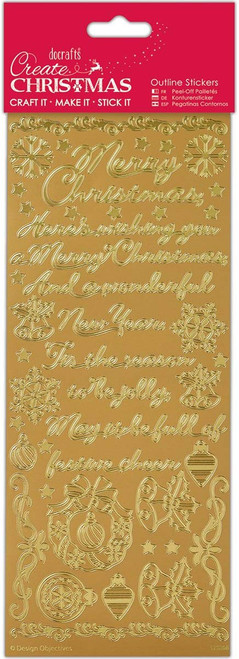 docrafts
Create
CHRISTMAS
CRAFT IT • MAKE IT • STICK IT
Outline Stickers
FR Peel-Off Pailletés
DE Konturensticker
ESP Pegatinas Contornos
Merry
Christmas
Here's wishing you
a Merry Christmas
And a wonderful
New Year
'Tis the season
to be jolly
May it be full of
festive cheer
© Design Objectives